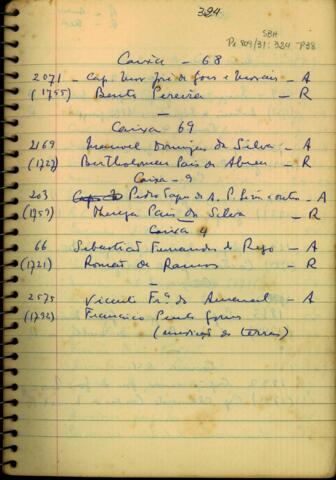 324
SBH
Pi 809/31: 324 P38
Caixa - 68
2071 - Cap. Mor José de Goes e Moraes - A
(1755) Bento Pereira - R
Caixa 69
2169 Manoel Domingos da Silva - A
(1727) Bartholomeu Pais de Abreu - R
Caixa - 9
203 Pedro Taques de A. P. Leme e outros - A
(1759) Thereza Pais da Silva - R
Caixa 4
66 Sebastião Fernandes do Rego - A
(1721) Romão de Ramos - R
2575 Vicente Frº do Amaral - A
(1792) Francisco Penteado
(medição de terras)